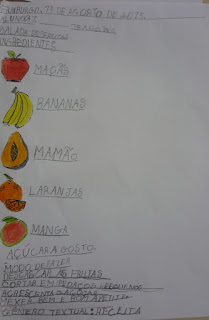 13 DE AGOSTO DE 2015.
SALADA DE FRUTAS
INGREDIENTES
MAÇÃS
BANANAS
MAMÃO
LARANJAS
MANGA
AÇÚCAR A GOSTO.
MODO DE FAZER
DESCASCAR AS FRUTAS
CORTAR EM PEDAÇOS PEQUENOS
ACRESCENTA O AÇÚCAR
MEXER BEM E BOM APETITE
GÊNERO TEXTUAL: RECEITA